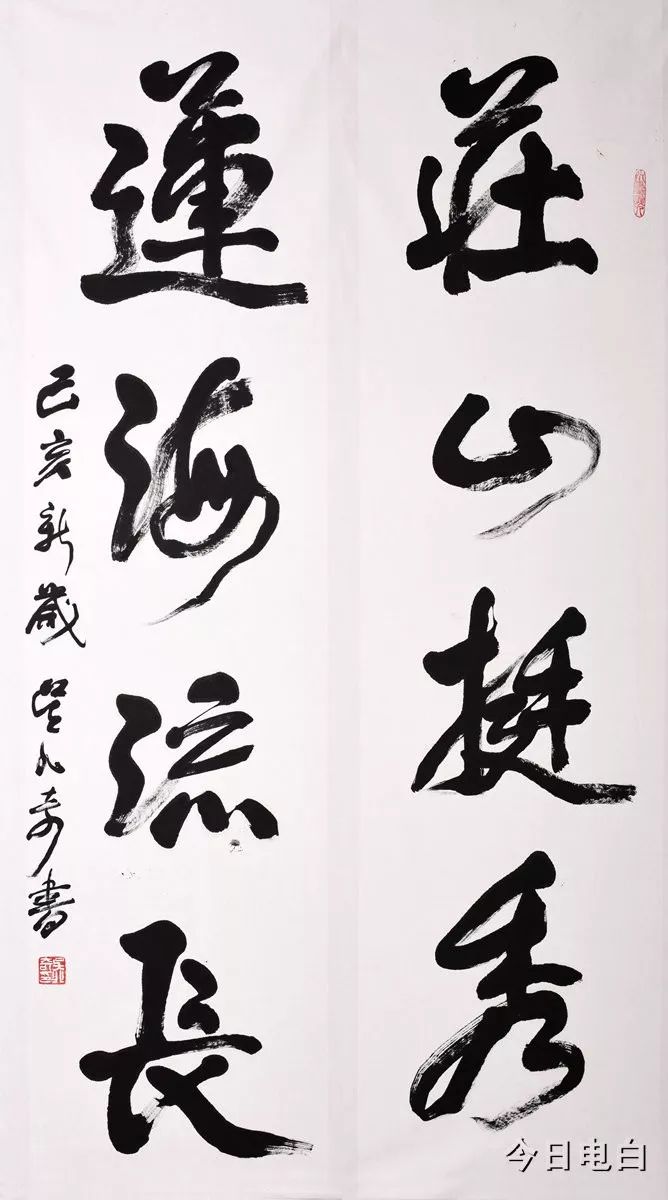 莊山挺秀
蓮海流長
己亥新歲 吴兆奇書
今日电白